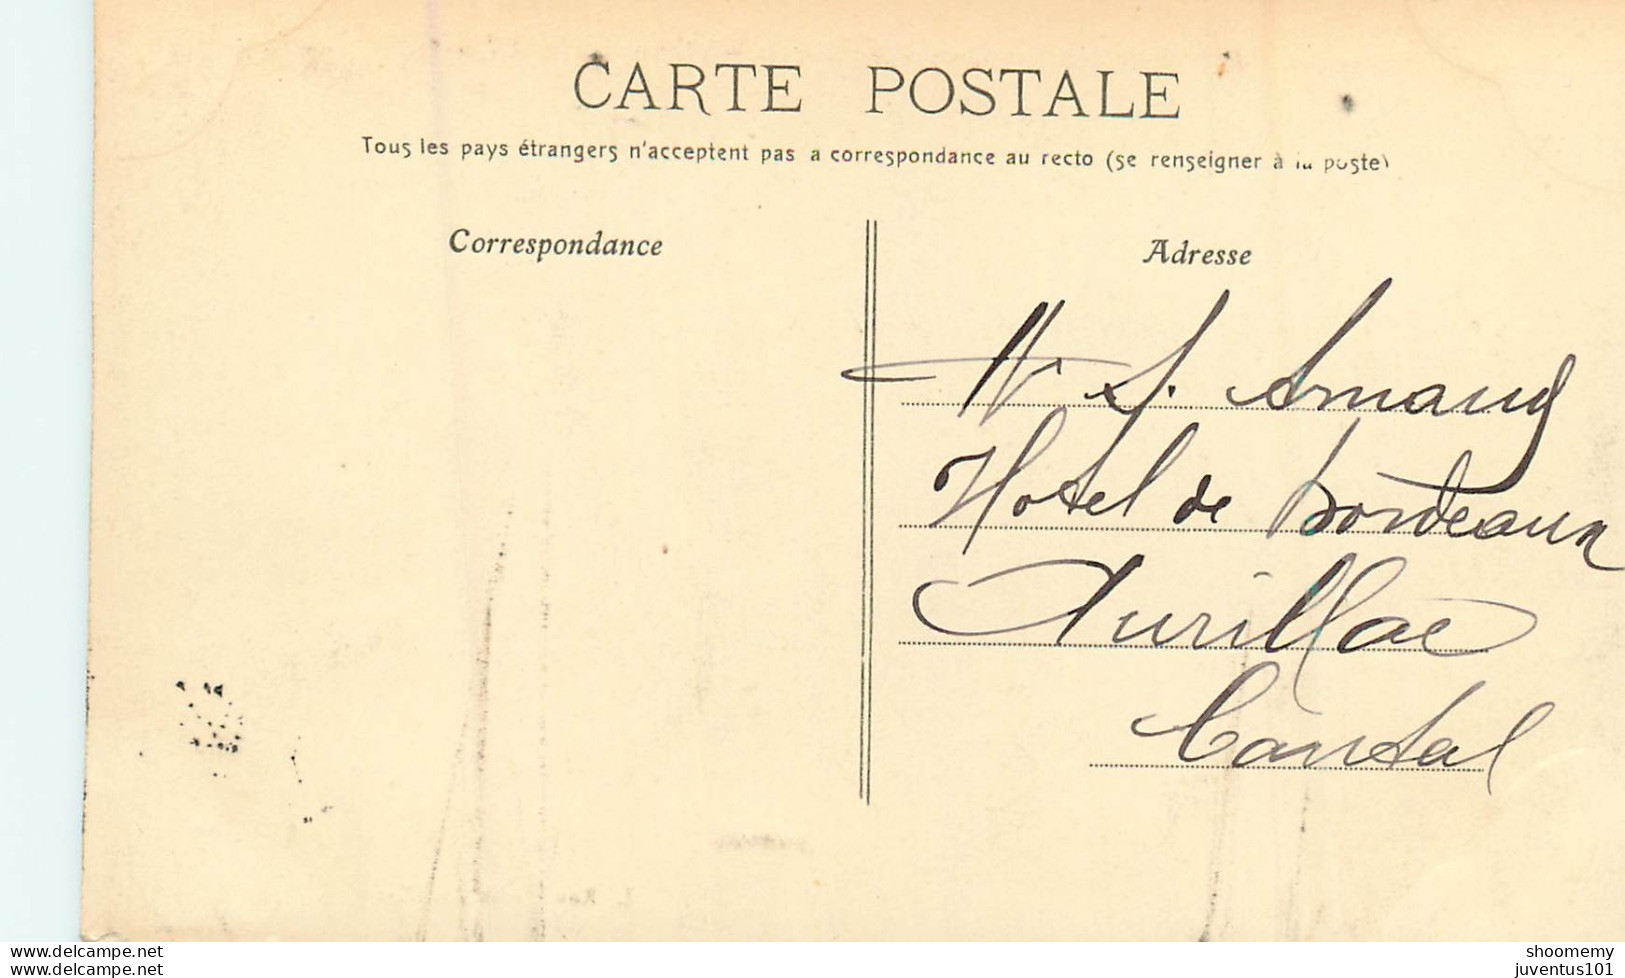 CARTE POSTALE
Tous les pays étrangers n'acceptent pas a correspondance au recto (se renseigner à la poste)
Correspondance
Adresse
S. Arnaud
Hotel de Bordeaux
Aurillac
Cantal
www.delcampe.net
www.delcampe.net
shoomemy
juventus101